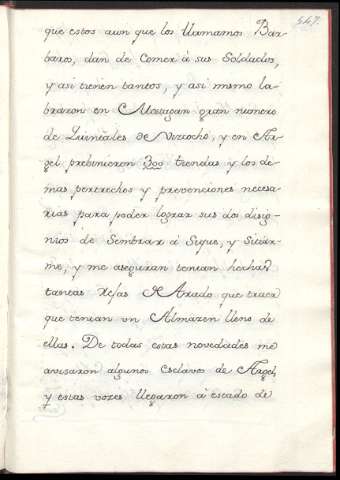 547.
que estos aun que los llamamos Bar-
baros, dan de Comer á sus Soldados,
y asi tienen tantos, y asi mismo la-
braron en Mostagan gran numero
de Quintales de Vizcocho, y en Ar-
gel prebinieron 300 tiendas y los de-
mas pertrechos y prevenciones necesa-
rias para poder lograr sus dos disig-
nios de Sembrar á Sigue, y Sitiar-
me, y me aseguran tenian hechas
tantas Rejas de Arado que traer
que tenian un Almazen lleno de
ellas. De todas estas novedades me
avisaron algunos Esclavos de Argel,
y estas vozes llegaron á estado de